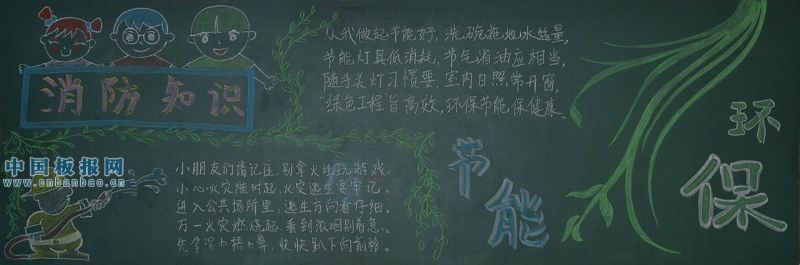 消防知识
从我做起节能好,洗碗拖地水适量,
节能灯具低消耗,节气省油应相当,
随手关灯习惯要,室内日照常开窗,
绿色工程旨高效,环保节能保健康。
环保
节能
中国板报网
www.cnbanbao.cn
小朋友们请记住,别拿火烛玩游戏.
小心火灾随时起,火灾逃生要牢记,
进入公共场所里,逃生方向看仔细.
万一火灾燃烧起,看到浓烟别着急.
先拿湿巾捂口鼻,快快趴下向前移.